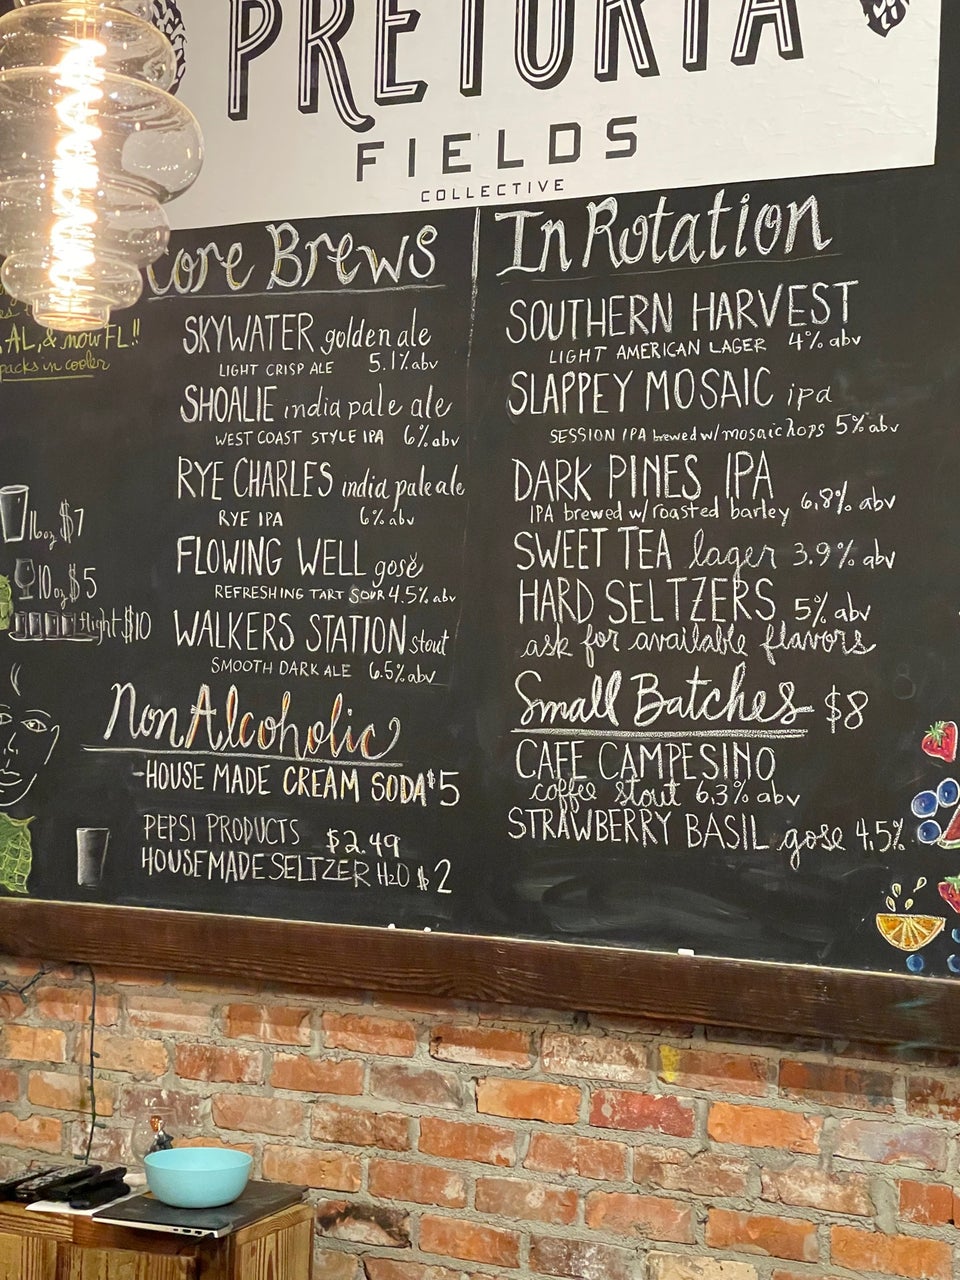 PRETORIA
FIELDS
COLLECTIVE
AL, & now FL!!
packs in cooler
16oz $7
10oz $5
flight $10
Core Brews
SKYWATER golden ale
LIGHT CRISP ALE 5.1% abv
SHOALIE india pale ale
WEST COAST STYLE IPA 6% abv
RYE CHARLES india pale ale
RYE IPA 6% abv
FLOWING WELL gose
REFRESHING TART SOUR 4.5% abv
WALKERS STATION stout
SMOOTH DARK ALE 6.5% abv
Non Alcoholic
-HOUSE MADE CREAM SODA $5
PEPSI PRODUCTS $2.49
HOUSEMADE SELTZER H2O $2
In Rotation
SOUTHERN HARVEST
LIGHT AMERICAN LAGER 4% abv
SLAPPEY MOSAIC ipa
SESSION IPA brewed w/ mosaic hops 5% abv
DARK PINES IPA
IPA brewed w/ roasted barley 6.8% abv
SWEET TEA lager 3.9% abv
HARD SELTZERS 5% abv
ask for available flavors
Small Batches $8
CAFE CAMPESINO
coffee stout 6.3% abv
STRAWBERRY BASIL gose 4.5%